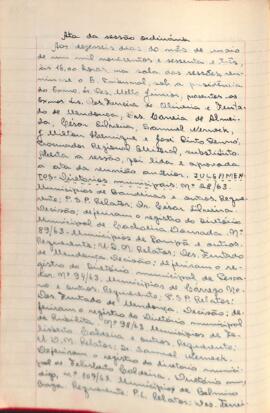 Ata da sessão ordinária
Aos dezesseis dias do mês de maio
de um mil novecentos e sessenta e três,
às 16,00 horas, na sala das sessões, reu-
niu-se o E. Tribunal, sob a presidência
do Exmo. Sr. Des. Mello Júnior, presentes os
Exmos. srs. Des. Ferreira de Oliveira e Furta-
do de Mendonça, Drs. Correia de Almei-
da, César Silveira, Samuel Werneck,
Milton Henrique e José Pinto Renno,
Procurador Regional Eleitoral, substituto.
Aberta a sessão, foi lida e aprovada
a ata da reunião anterior. JULGAMEN-
TOS: Diretórios municipais: Nº 28/63
Municípios de e outros. Reque-
rente: P.S.P. Relator: Dr. César Silveira.
Decisão: deferiram o registro do Diretório
municipal de Cachoeira Dourada. Nº
89/63. Municípios de e outros.
Requerente: U.D.N. Relator: Des. Furtado
de Mendonça. Decisão: deferiram o re-
gistro do Diretório municipal de
Nº 94/63. Municípios de Córrego No-
vo e outros. Requerente: P.S.P. Relator:
Des. Furtado de Mendonça. Decisão: de-
feriram o registro do Diretório municipal
de Nº 98/63. Municípios de Fe-
lisberto Caldeira e outros. Requerente:
U.D.N. Relator: Dr. Samuel Werneck.
Deferiram o registro do diretório munici-
pal de Felisberto Caldeira. Diretório mu-
nicip. Nº 109/63. Município de
Requerente: P.L. Relator: Des. Ferrei-